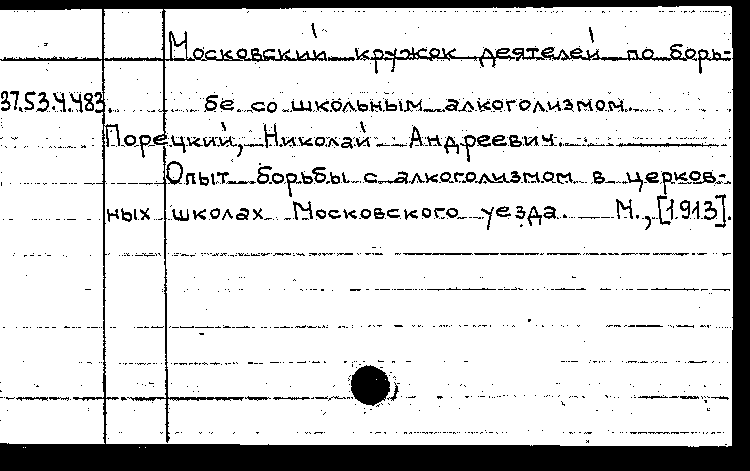 Московский кружок деятелей по борь-
37.53.4.483. бе со школьным алкоголизмом.
Порецкий, Николай Андреевич.
Опыт борьбы с алкоголизмом в церков-
ных школах Московского уезда. М., [1913].